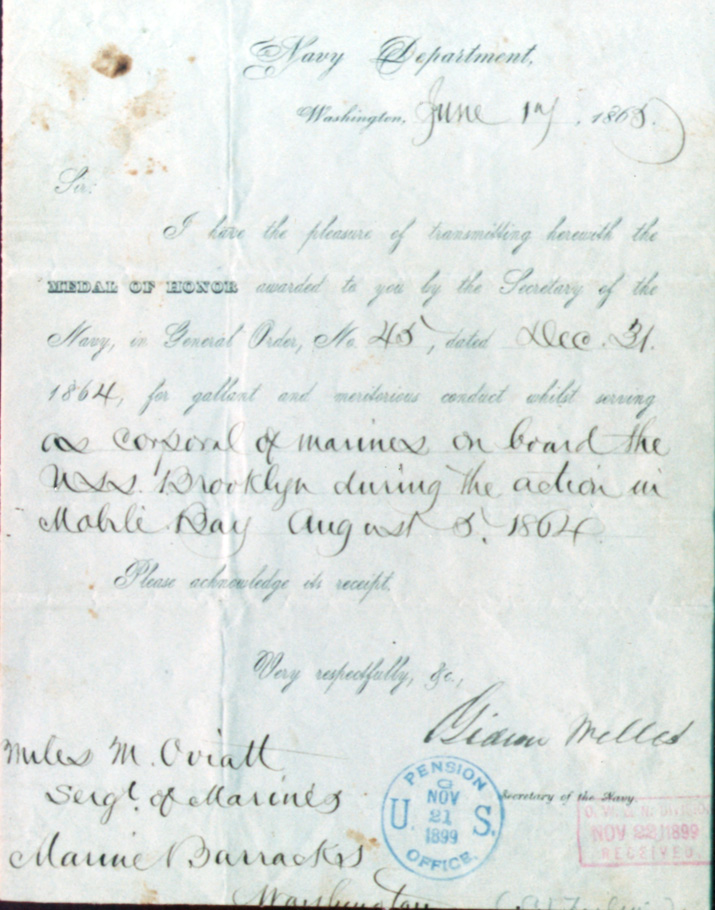 Navy Department,
Washington, June 17, 1865.
Sir:
I have the pleasure of transmitting herewith the
MEDAL OF HONOR awarded to you by the Secretary of the
Navy, in General Order, No. 45, dated Dec. 31.
1864, for gallant and meritorious conduct whilst serving
as corporal of marines on board the
U.S.S. Brooklyn during the action in
Mobile Bay August 5, 1864.
Please acknowledge its receipt.
Very respectfully, &c.,
Gideon Welles
Secretary of the Navy.
Miles M. Oviatt
Sergt. of Marines
Marine Barracks
Washington
U. S. PENSION OFFICE.
NOV
21
1899
NOV 22 1899
RECEIVED.